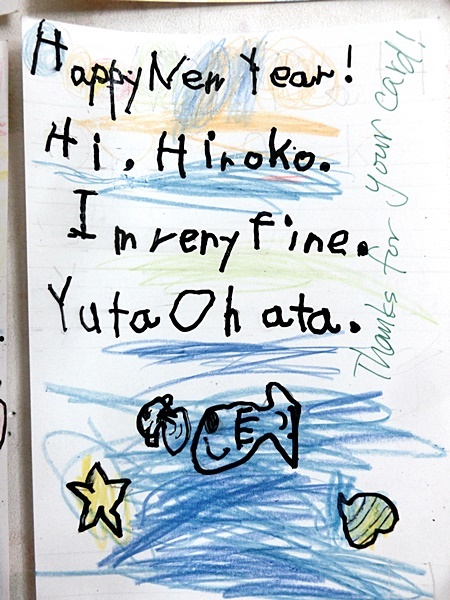 Happy New Year!
Hi, Hiroko.
I m very fine.
Yuta Ohata.
Thanks for your card!